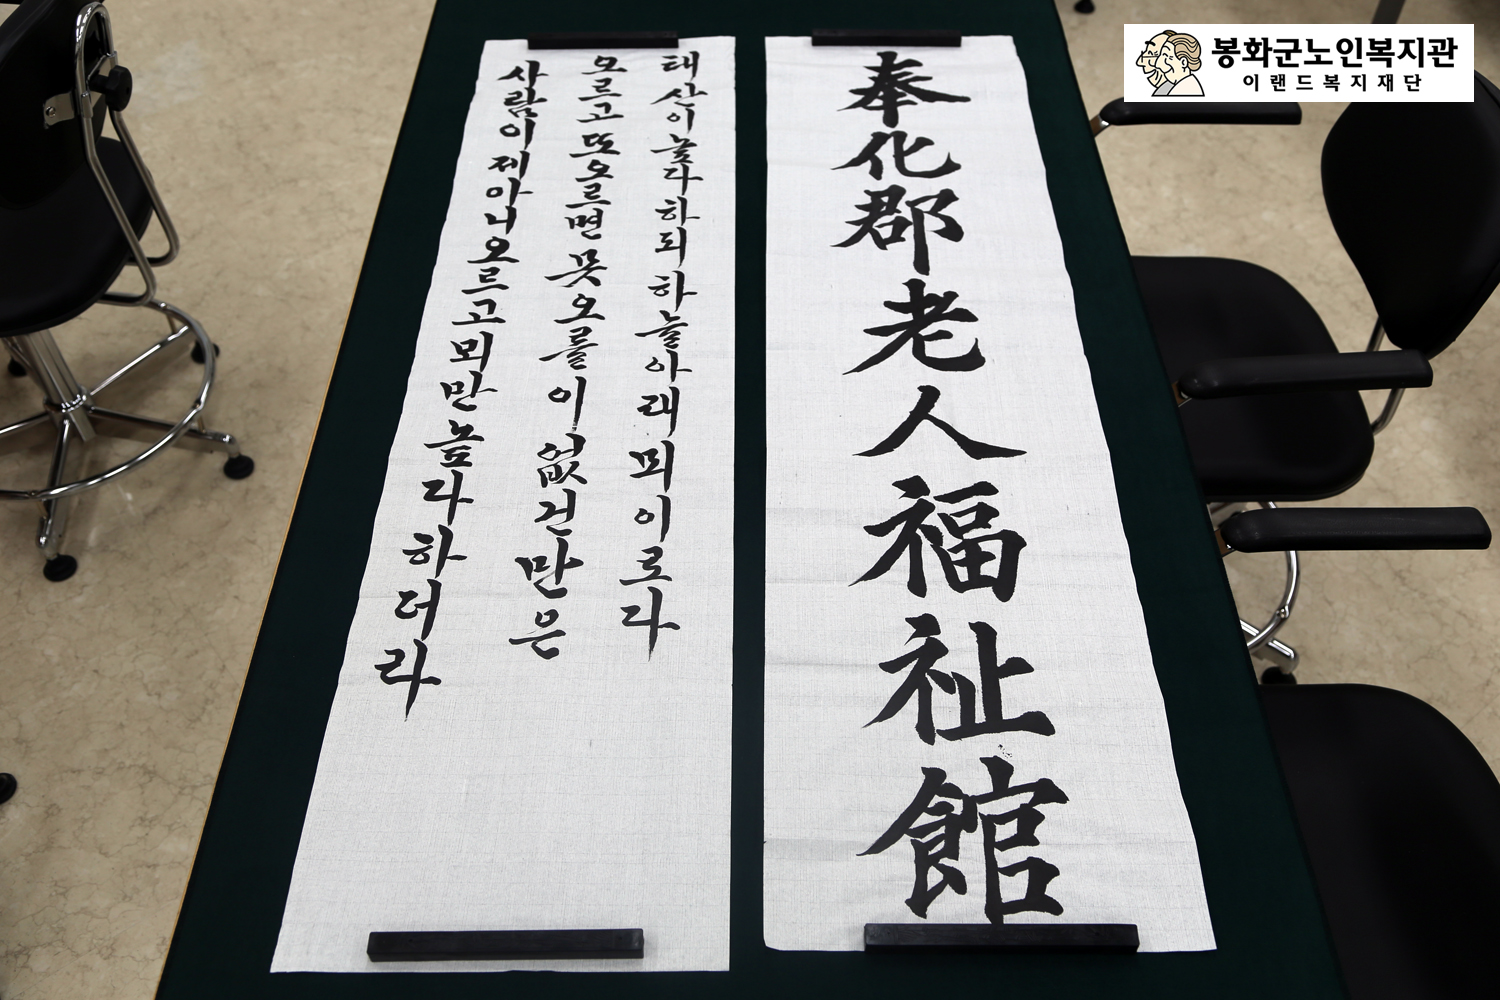 봉화군노인복지관
이랜드복지재단
奉化郡老人福祉館
태산이높다하되하늘아래뫼이로다
오르고또오르면못오를이없건만은
사람이제아니오르고뫼만높다하더라